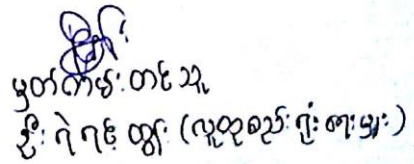 မှတ်တမ်းတင်သူ
ဦးရဲရင့်ထွန်း (လူထုစည်းရုံးရေးမှူး)